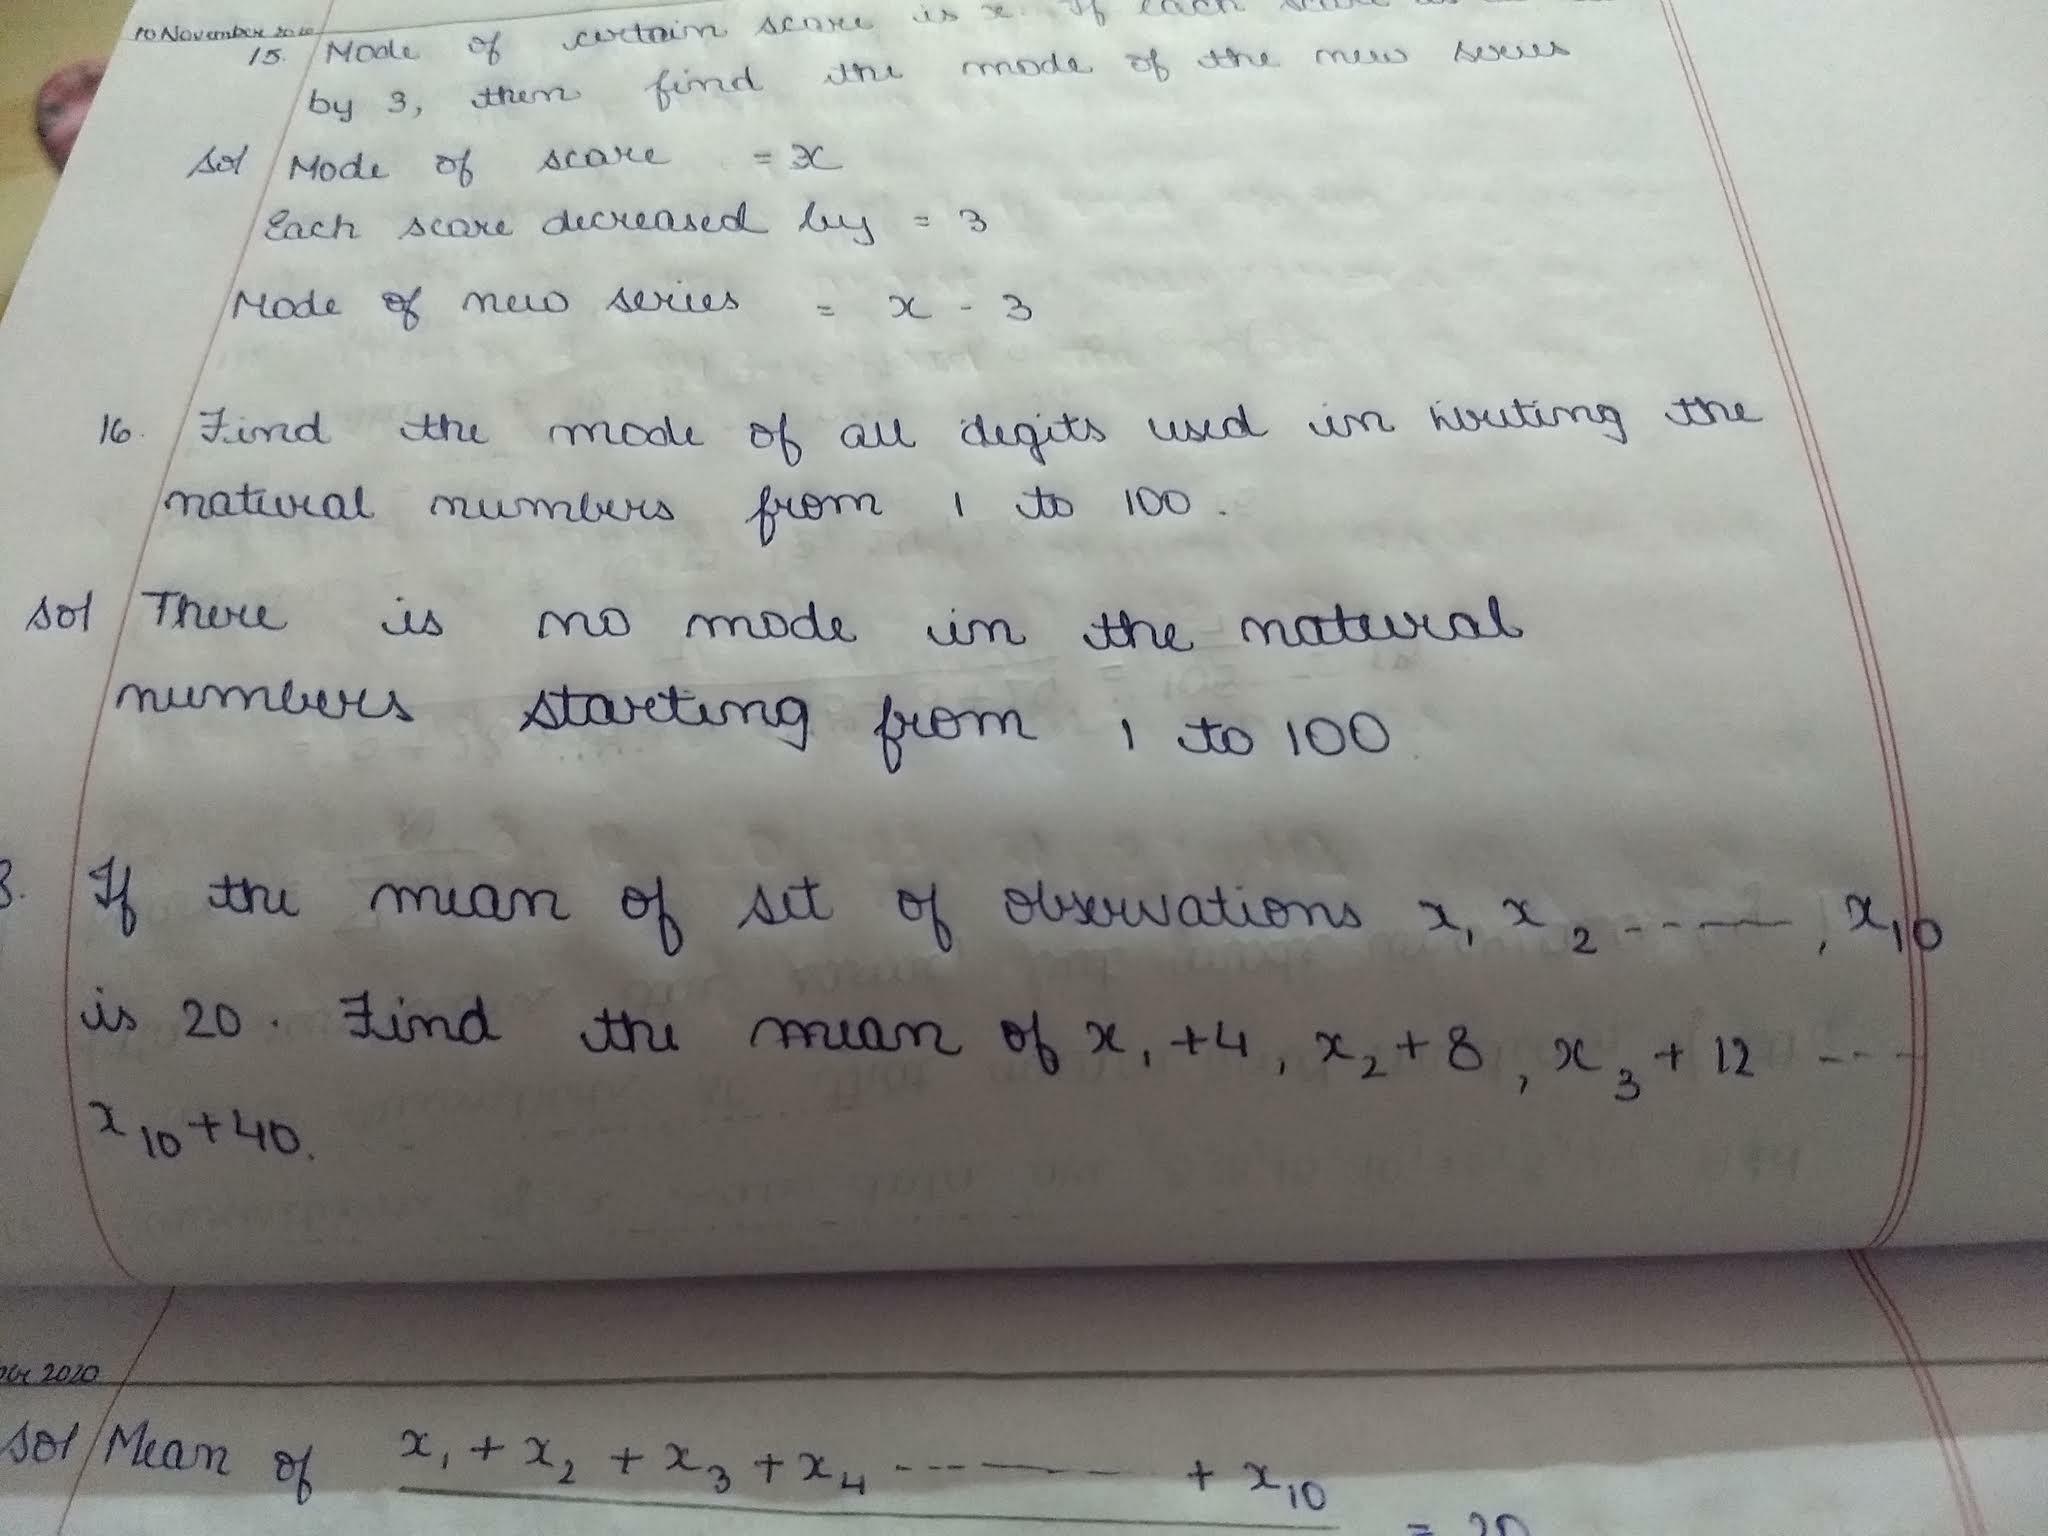 10 November 2020
15. Mode of certain score is x. If each score is
by 3, then find the mode of the new series
Sol Mode of score = x
Each score decreased by = 3
Mode of new series = x - 3
16. Find the mode of all degits used in writing the
natural numbers from 1 to 100.
Sol There is no mode in the natural
numbers starting from 1 to 100
3. If the mean of set of observations x₁ x₂ -----, x₁₀
is 20. Find the mean of x₁ + 4, x₂ + 8, x₃ + 12 ---
x₁₀ + 40.
2020
Sol Mean of x₁ + x₂ + x₃ + x₄ ------- + x₁₀
= 20